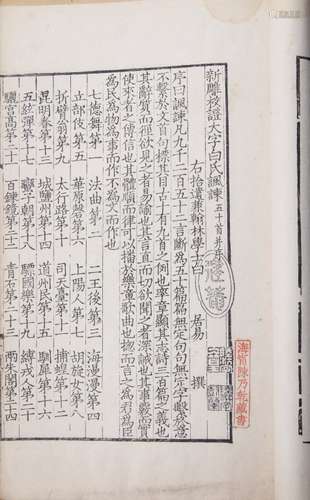 新雕校證大字白氏諷諫 五十首并序
右拾遺兼翰林學士白居易 撰
序曰諷諫凡九千二百五十二言斷為五十篇篇無定句句無定字繫於意
不繫於文首句標其目古十有九首之例也卒章顯其志詩三百篇之義也
其辭質而徑欲見之者易諭也其言直而切欲聞之者深誡也其事覈而實
使來者之傳信也其體順而律可以播於樂章歌曲也揔而言之為君為臣
為民為物為事而作不為文而作也
七德舞第一 法曲第二 二王後第三 海漫漫第四
立部伎第五 華原磬第六 上陽人第七 胡旋女第八
折臂翁第九 太行路第十 司天臺第十一 捕蝗第十二
昆明春第十三 城鹽州第十四 道州民第十五 馴犀第十六
五絃彈第十七 蠻子朝第十八 驃國樂第十九 縛戎人第二十
驪宮高第二十一 百鍊鏡第二十二 青石第二十三 兩朱閣第二十四
海寧陳乃乾藏書